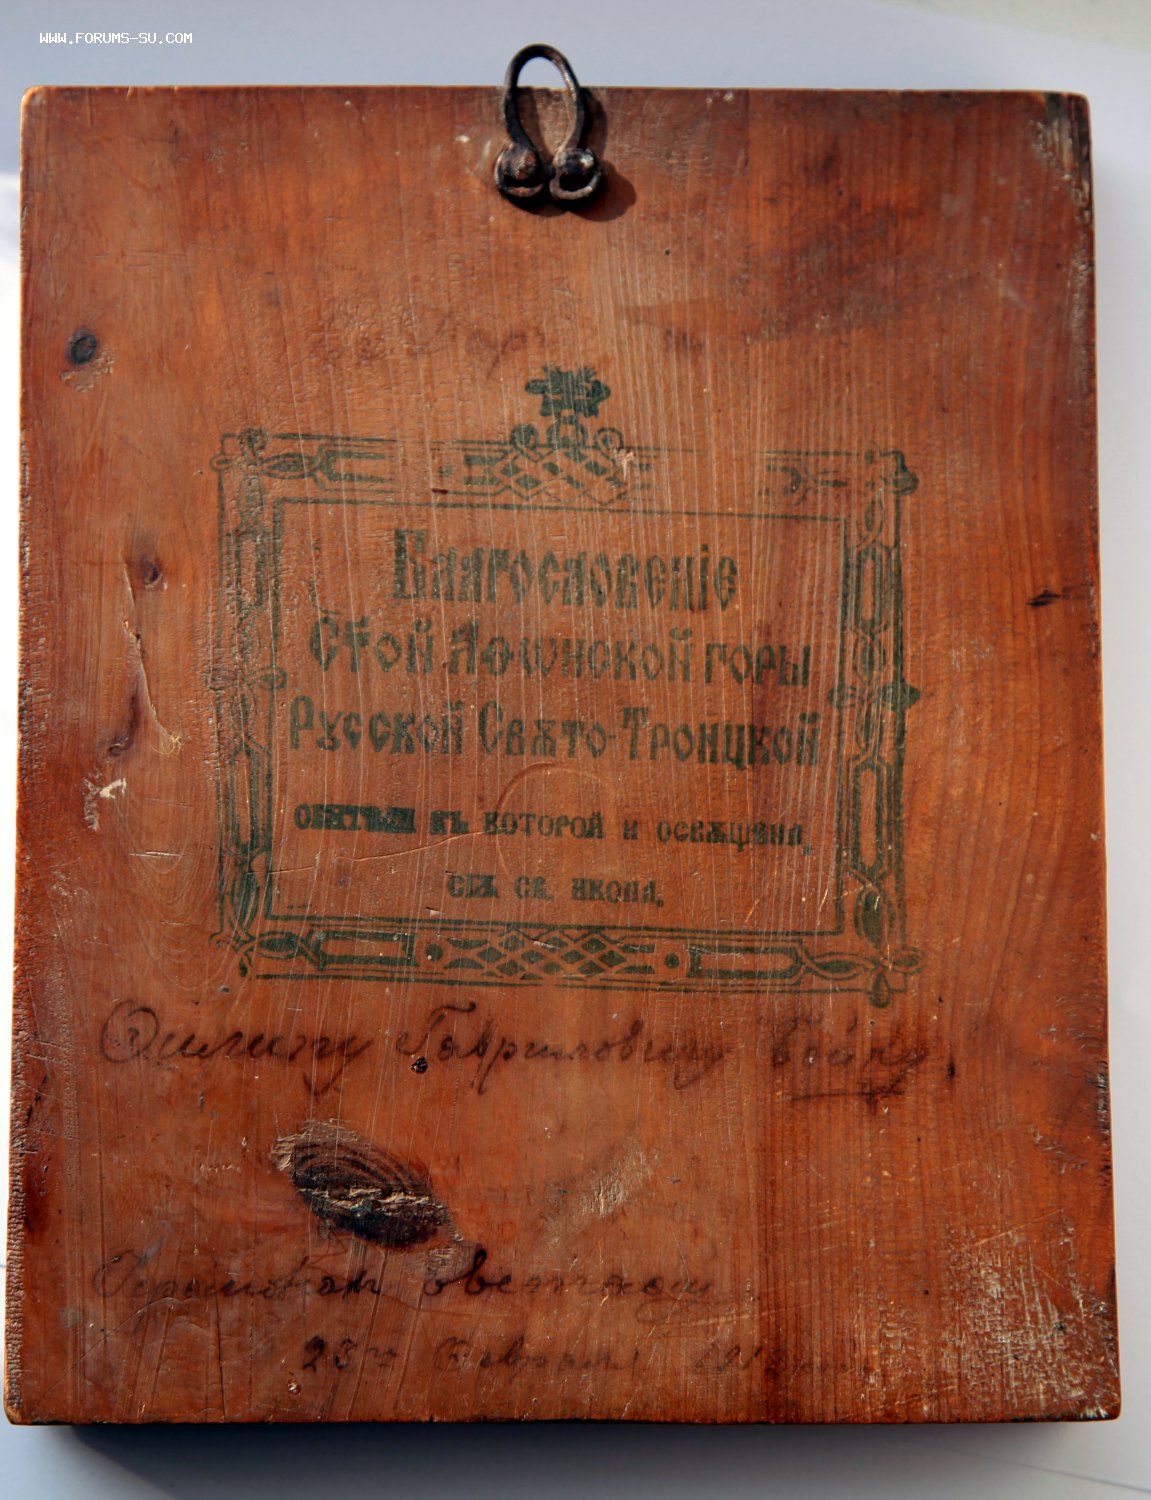 WWW.FORUMS-SU.COM
Благословенiе
Ст҃ой Аѳѡнской горы
Русской Свѧто-Троицкой
обители въ которой и освѧщена
сіѧ св. икона.
Филипу Гавриловичу
23го Февраля